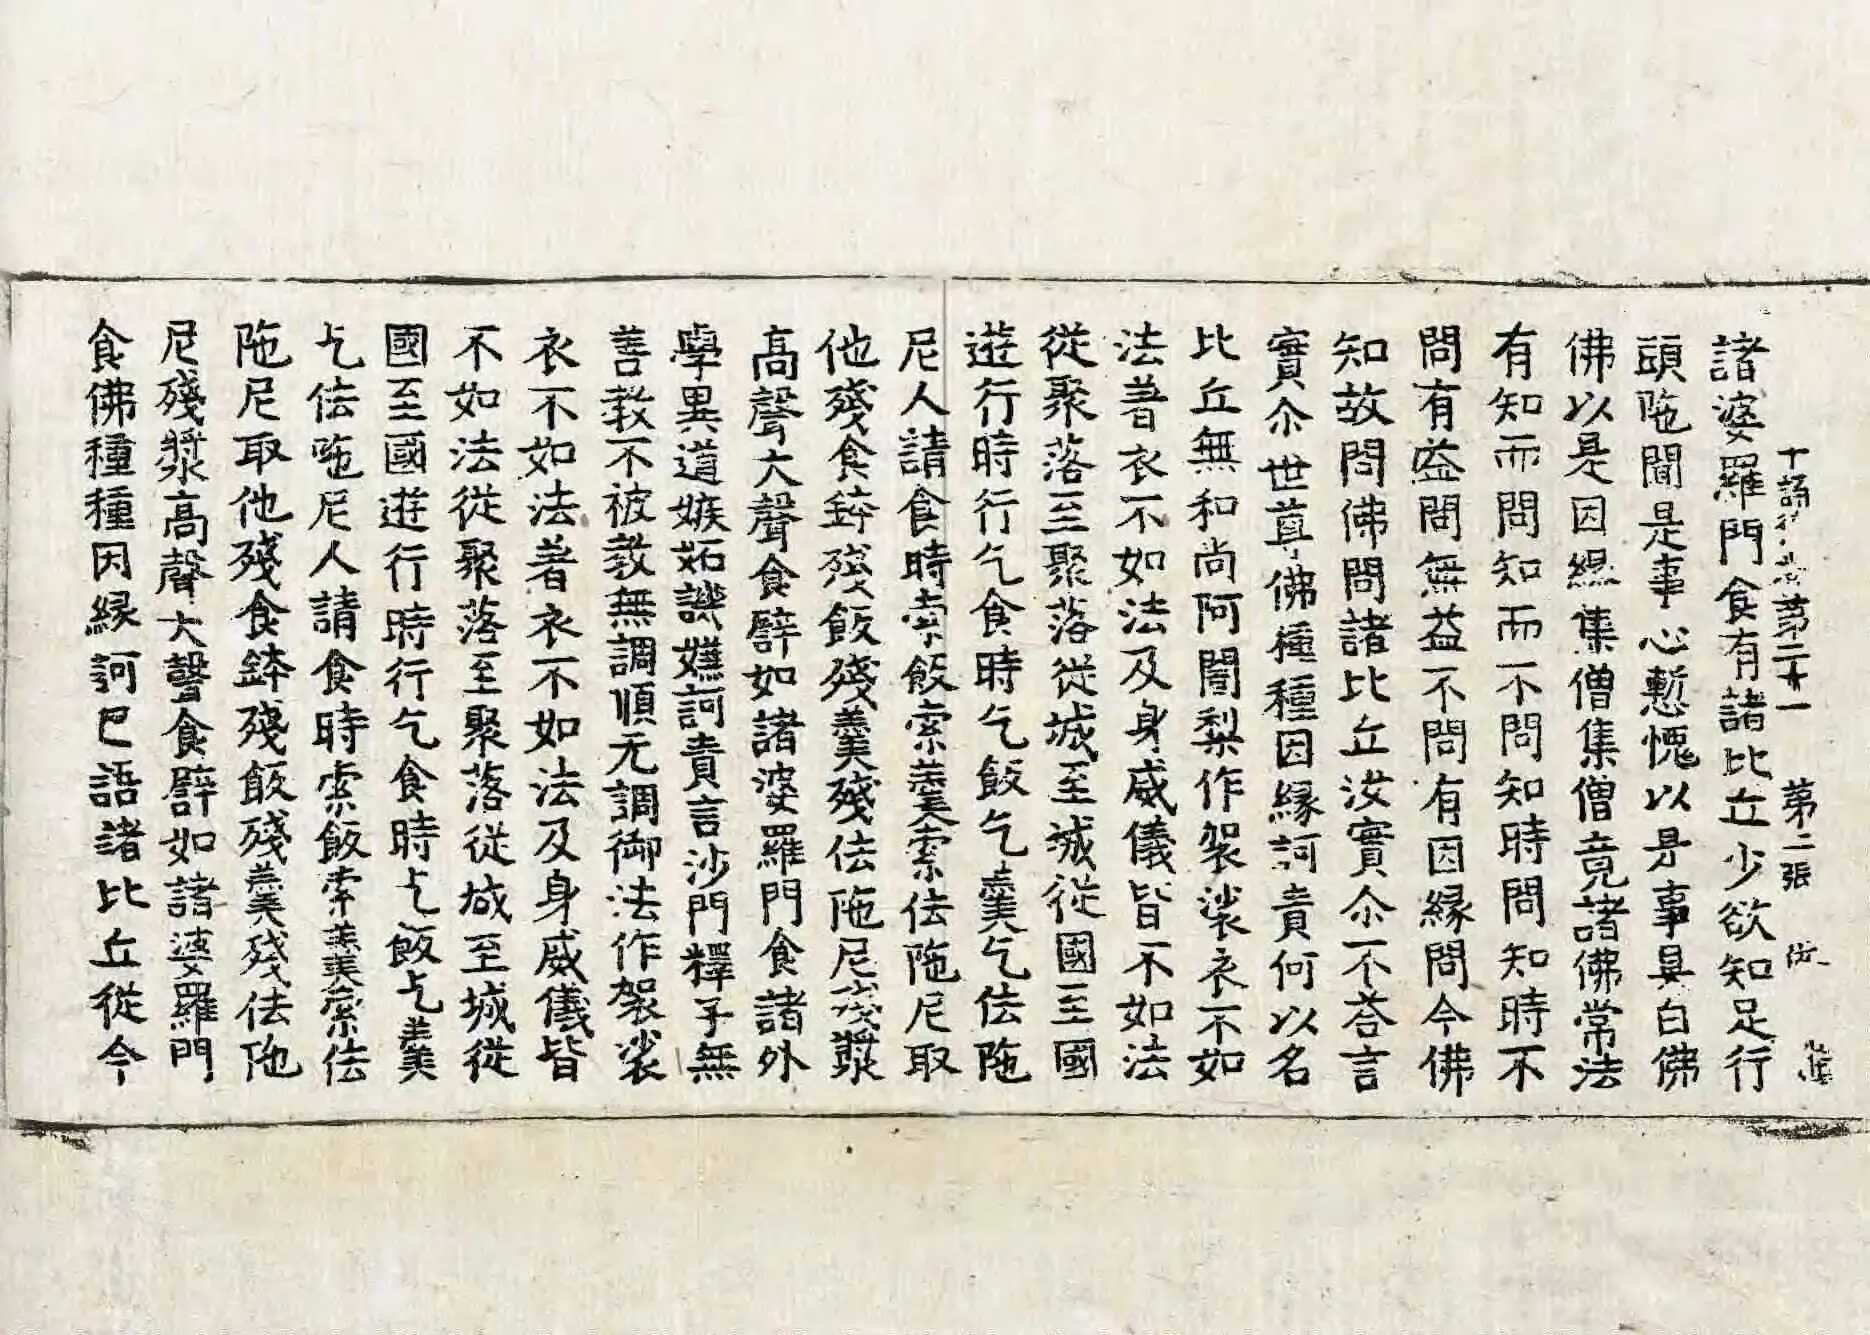 十誦律卷第二十一 第二張
諸婆羅門食有諸比丘少欲知足行
頭陁聞是事心慙愧以是事具白佛
佛以是因緣集僧集僧竟諸佛常法
有知而問知而不問知時問知時不
問有益問無益不問有因縁問今佛
知故問佛問諸比丘汝實尒不荅言
實尒世尊佛種種因縁訶責何以名
比丘無和尚阿闍梨作袈裟衣不如
法著衣不如法及身威儀皆不如法
從聚落至聚落從城至城從國至國
遊行時行乞食時乞飯乞羹乞佉陁
尼人請食時索飯索羹索佉陁尼取
他殘食鉢殘飯殘羹殘佉陁尼殘漿
高聲大聲食譬如諸婆羅門食諸外
學異道嫉妬譏嫌訶責言沙門釋子無
善教不被教無調順无調御法作袈裟
衣不如法著衣不如法及身威儀皆
不如法從聚落至聚落從城至城從
國至國遊行時行乞食時乞飯乞羹
乞佉陁尼人請食時索飯索羹索佉
陁尼取他殘食鉢殘飯殘羹殘佉陁
尼殘漿高聲大聲食譬如諸婆羅門
食佛種種因縁訶已語諸比丘從今